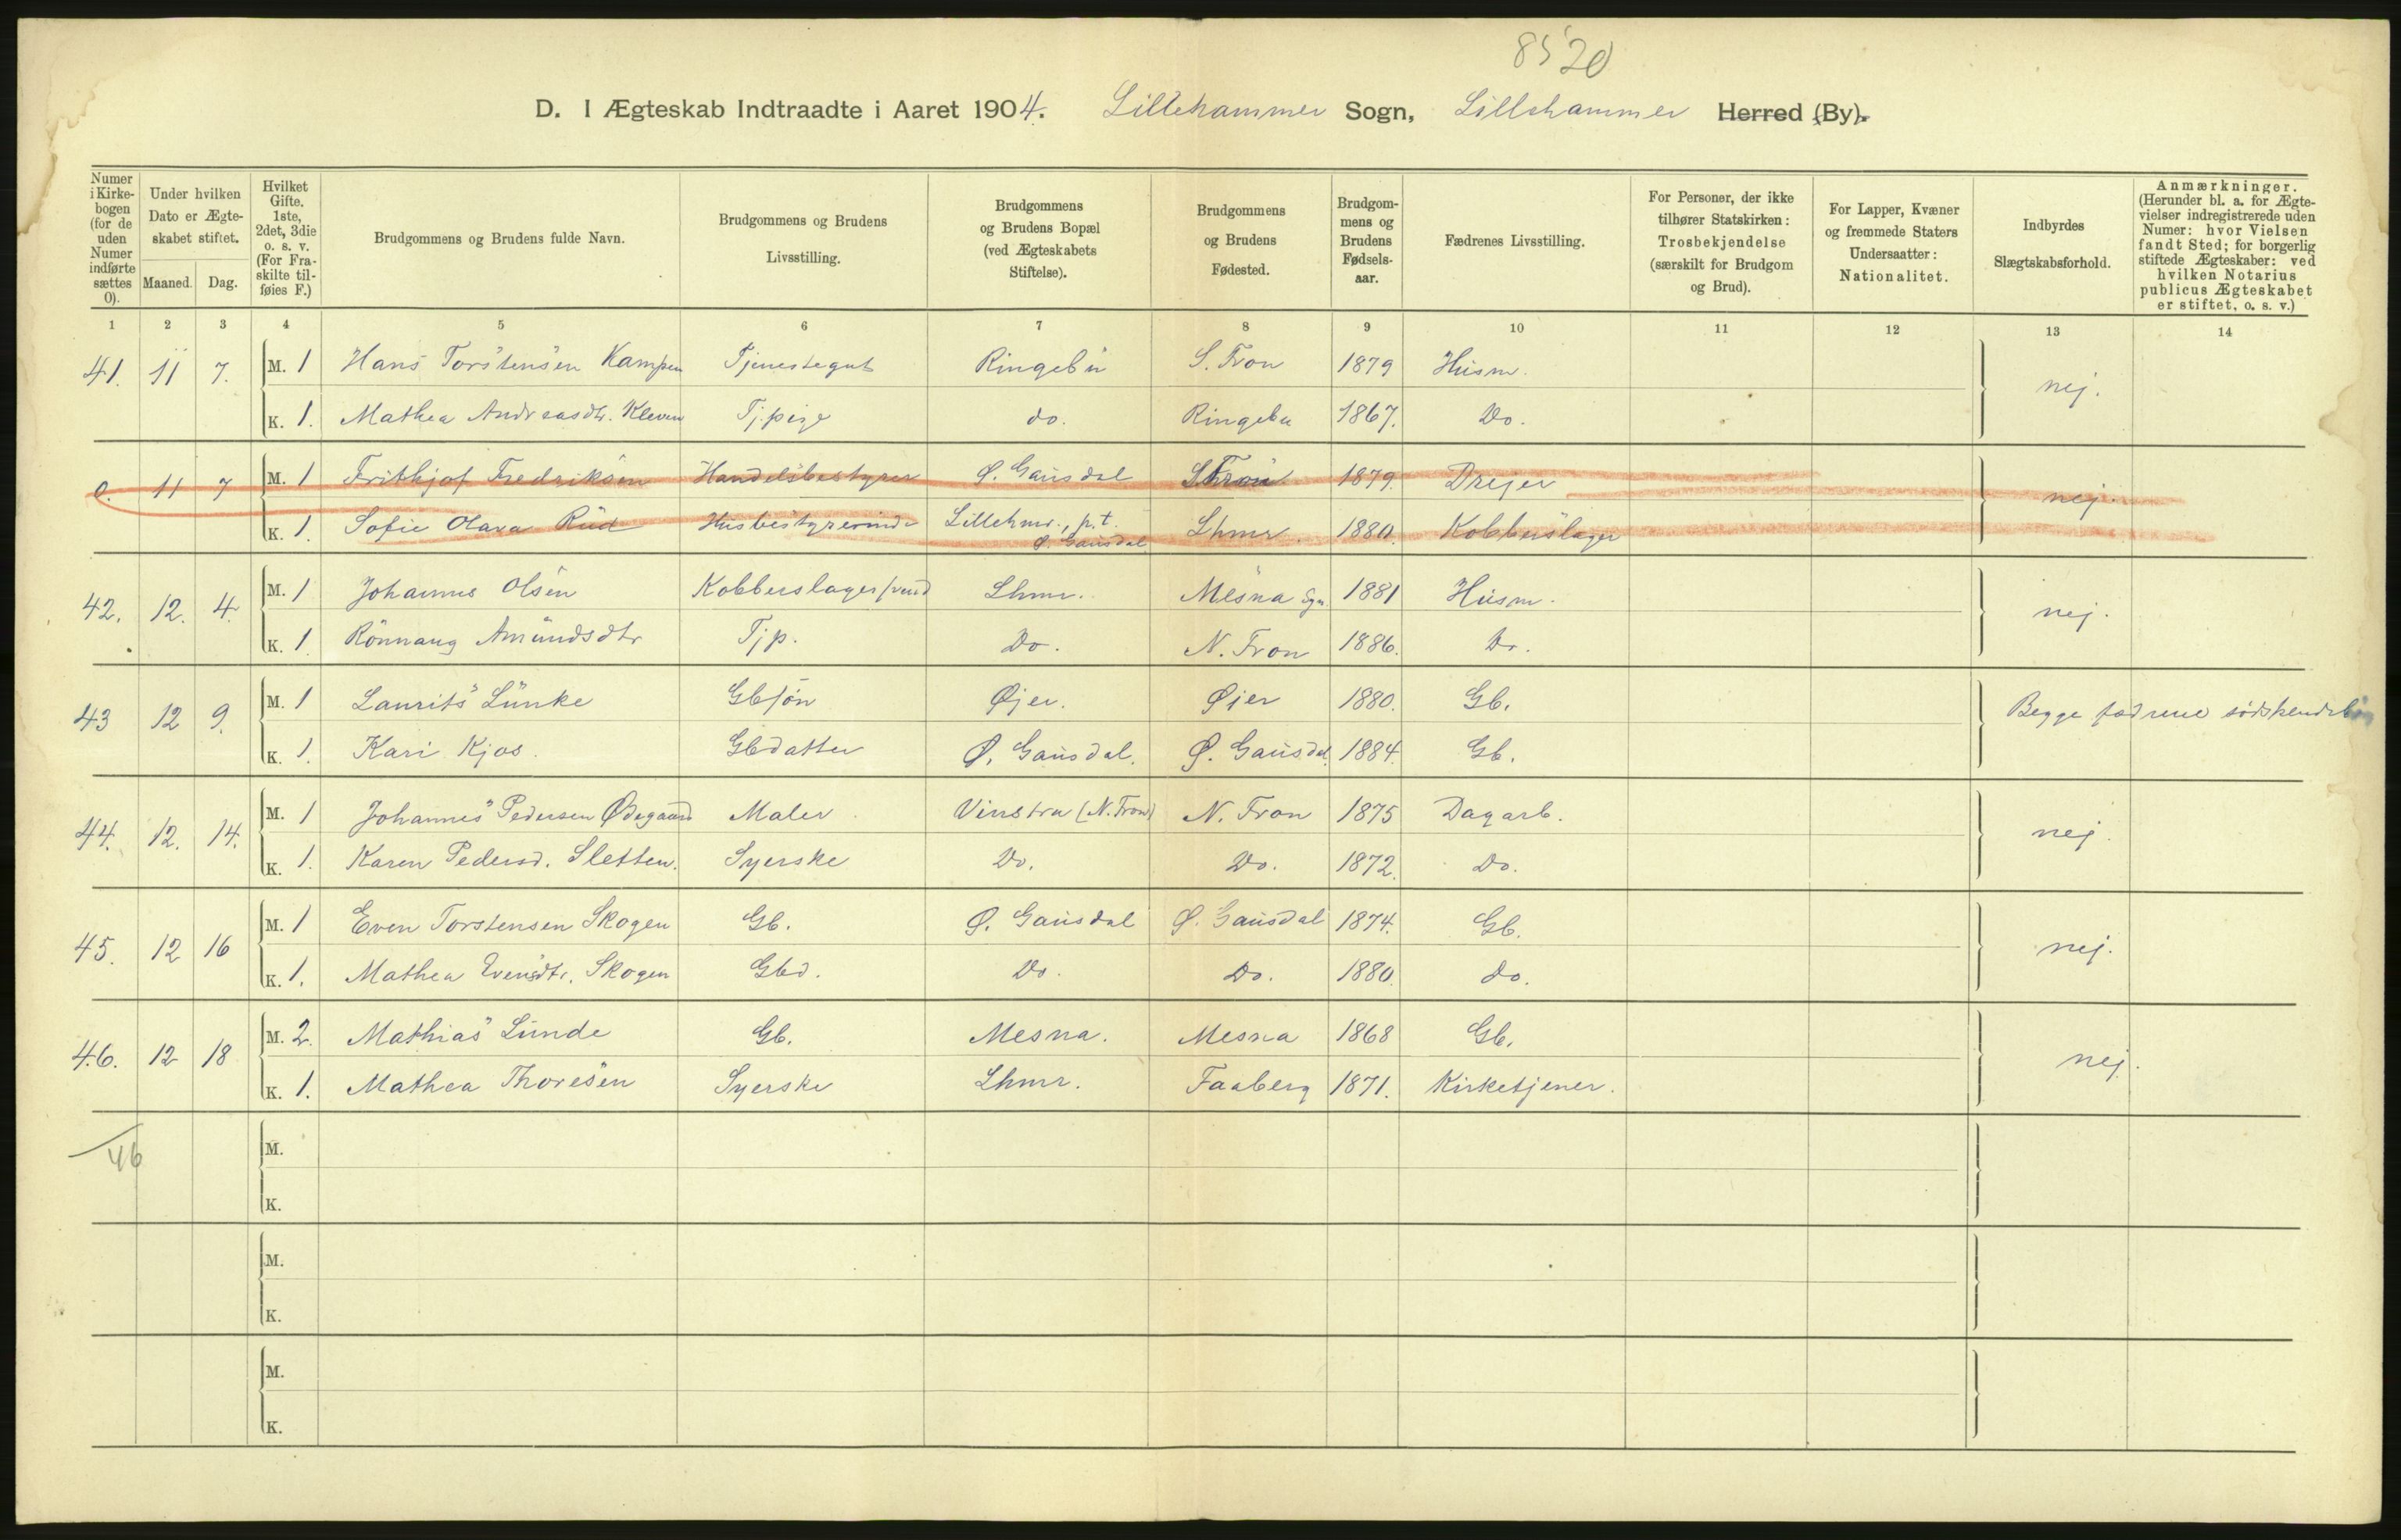 8520
D. I Ægteskab Indtraadte i Aaret 1904. Lillehammer Sogn, Lillehammer Herred (By).
Numer i Kirkebogen (for de uden Numer indførte sættes 0).
Under hvilken Dato er Ægteskabet stiftet.
Maaned. Dag.
Hvilket Gifte. 1ste, 2det, 3die o. s. v. (For Fraskilte tilføies F.)
Brudgommens og Brudens fulde Navn.
Brudgommens og Brudens Livsstilling.
Brudgommens og Brudens Bopæl (ved Ægteskabets Stiftelse).
Brudgommens og Brudens Fødested.
Brudgommens og Brudens Fødselsaar.
Fædrenes Livsstilling.
For Personer, der ikke tilhører Statskirken: Trosbekjendelse (særskilt for Brudgom og Brud).
For Lapper, Kvæner og fremmede Staters Undersaatter: Nationalitet.
Indbyrdes Slægtskabsforhold.
Anmærkninger. (Herunder bl. a. for Ægtevielser indregistrerede uden Numer: hvor Vielsen fandt Sted; for borgerlig stiftede Ægteskaber: ved hvilken Notarius publicus Ægteskabet er stiftet, o. s. v.)
1 2 3 4 5 6 7 8 9 10 11 12 13 14
41. 11 7. M. 1 Hans Torstensen Kampen Tjenestegut Ringebu S. Fron 1879 Husm. nej.
K. 1. Mathea Andreasdtr. Kleven Tj.pige do. Ringebu 1867. Do.
0. 11 7 M. 1 Frithjof Fredriksen Handelsbestyrer Ø. Gausdal S. Fron 1879. Drejer nej.
K. 1. Sofie Olava Rud Husbestyrerinde Lillehmr., p.t. Ø. Gausdal Lhmr. 1880. Kobberslager
42. 12. 4. M. 1 Johannes Olsen Kobberslagersvend Lhmr. Mesna Sgn. 1881 Husm. nej.
K. 1 Rönnaug Amundsdtr Tjp. Do. N. Fron 1886. Do.
43 12 9. M. 1 Laurits Lunke Gbsøn Øjer. Øjer 1880. Gb. Begge fædrene södskendebörn
K. 1. Kari Kjos. Gbdatter Ø. Gausdal. Ø. Gausdal. 1884. Gb.
44. 12. 14. M. 1 Johannes Pedersen Ødegaard Maler Vinstra (N. Fron) N. Fron 1875 Dagarb. nej.
K. 1. Karen Pedersd. Sletten. Syerske Do. Do. 1872. Do.
45. 12 16 M. 1 Even Torstensen Skogen Gb. Ø. Gausdal Ø. Gausdal 1874. Gb. nej.
K. 1. Mathea Evensdtr. Skogen Gbd. Do. Do. 1880. do.
46. 12 18 M. 2. Mathias Lunde Gb. Mesna. Mesna 1868 Gb. nej.
K. 1. Mathea Thoresen Syerske Lhmr. Faaberg 1871. Kirketjener.
46 M.
K.
M.
K.
M.
K.